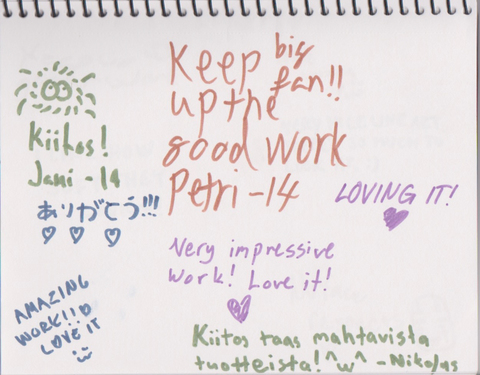 Keep big
up the fan!!
good work
Petri -14
Kiitos!
Jani -14
ありがとう!!!
LOVING IT!
Very impressive
work! Love it!
AMAZING
WORK!!
LOVE IT
Kiitos taas mahtavista
tuotteista! ^w^ -Nikolas